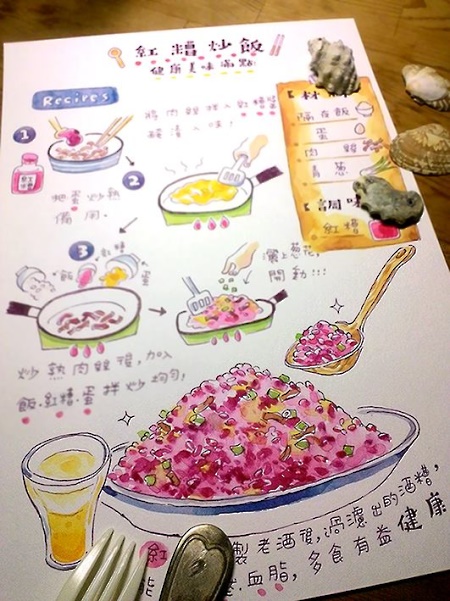 紅糟炒飯
健康美味滿點
Recipes
材料
隔夜飯
蛋
肉絲
青蔥
調味
紅糟
1
將肉絲拌入紅糟醬
醃漬入味,
紅糟
2
把蛋炒熟
備用.
3
飯
紅糟
蛋
炒熟肉絲後,加入
飯.紅糟.蛋拌炒均勻,
灑上蔥花,
開動!!!
紅 製老酒後,過濾出的酒糟,
血脂,多食有益健康